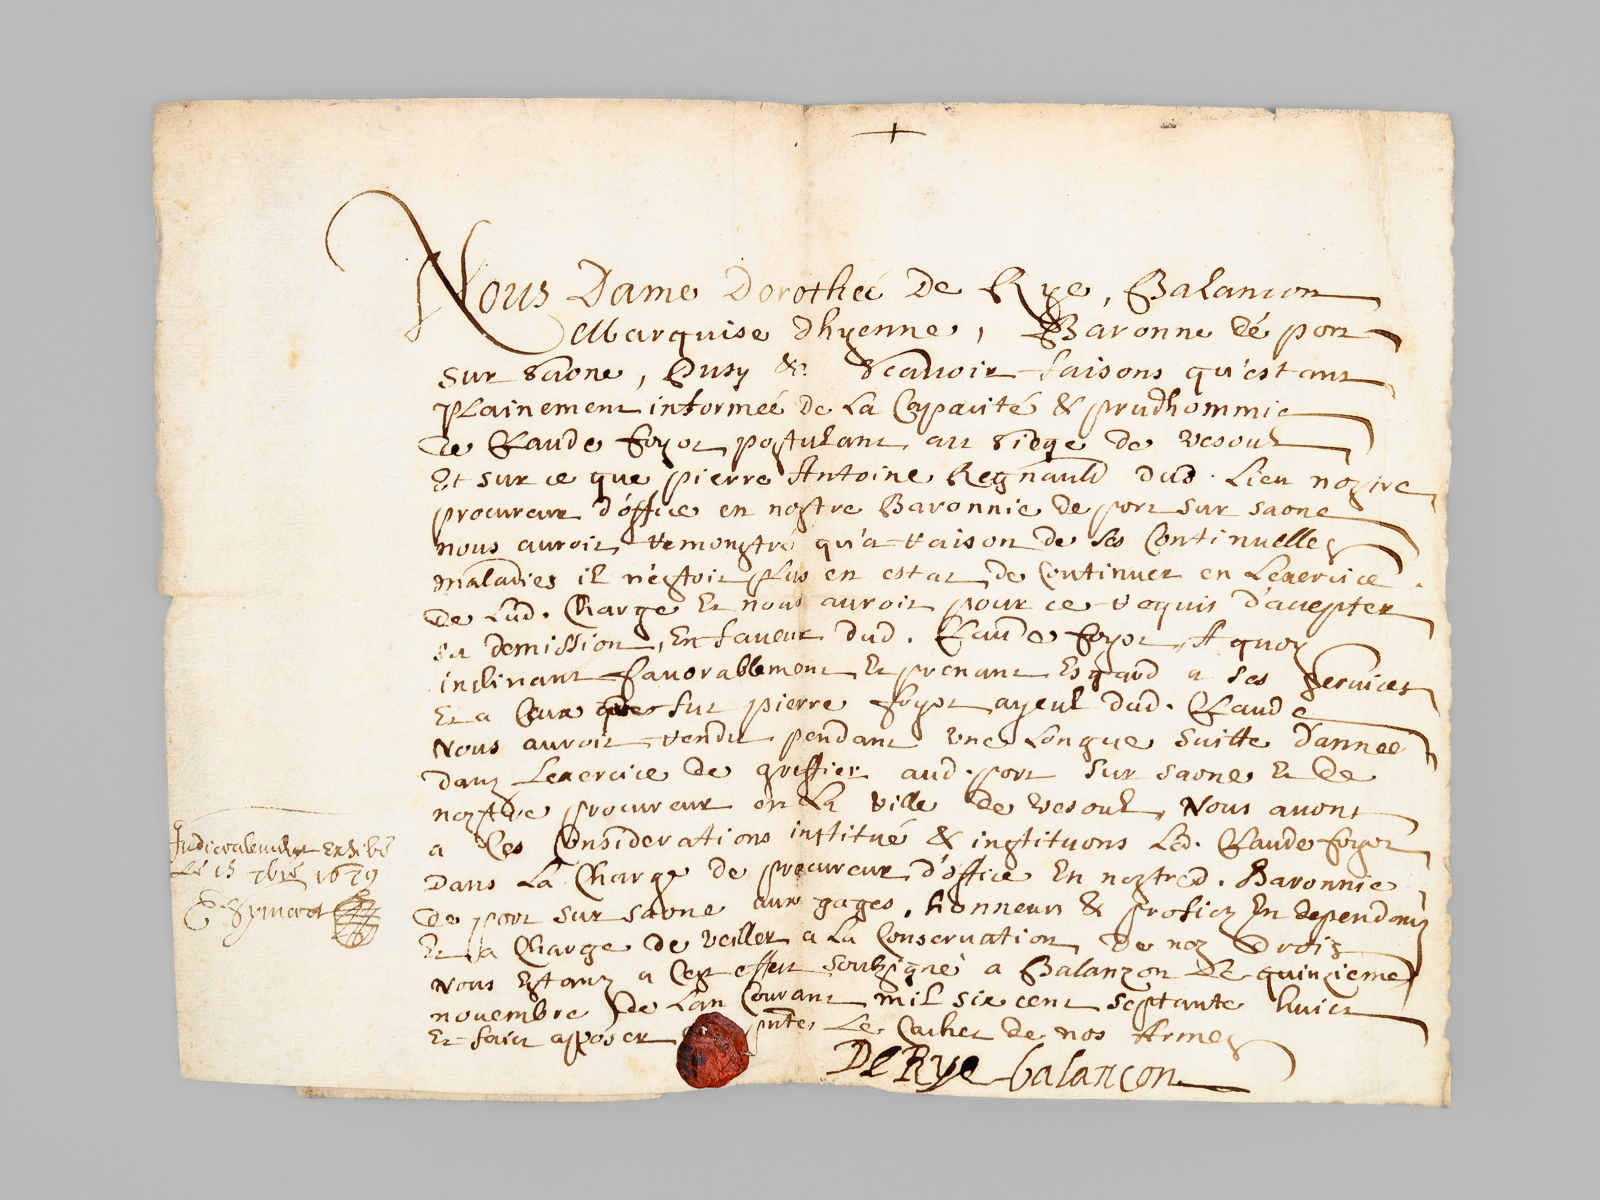 Nous Dame Dorotheé De Rye, Balancon
Marquise dhyenne, Baronne dé port
sur saone, Pusy &c. scauoir faisons qu'estant
plainement informeé de La Capacité & prudhommie
de Claude foyot postulant au siege de vesoul
Et sur ce que pierre Antoine Regnauld dud. Lieu nostre
procureur d'office en nostre Baronnie de port sur saone
nous auroit remonstré qu'a raison de ses Continuelles
maladies il n'estoit plus en estat de Continuer en Lexercice
de Lad. Charge Et nous auroit pour ce requis d'accepter
sa demission, En faueur dud. Claude foyot, A quoy
inclinant fauorablement Et prenant Esgard a ses seruices
Et a Ceux que fut pierre foyot ayeul dud. Claude
Nous auroit rendu pendant vne Longue suitte d'anneé
dans Lexercice de greffier aud. port sur saone Et de
nostre procureur en La ville de vesoul, Nous auons
a Ces Considerations institué & instituons Led. Claude foyot
Dans La Charge de procureur d'office En nostred. Baronnie
de port sur saone aux gages, honneurs & profictz En dependantz
Et a Charge de veiller a La Conseruation De noz Droitz
Nous Estantz a Cest effect soubsigné a Balanzon Le quinzieme
nouembre de L'an Courant mil six cent septante huict
Et faict apposer pntes Le Cachet de nos Armes
De Rye balancon
Judicialement Exhibé
Le 15 7bre 1679